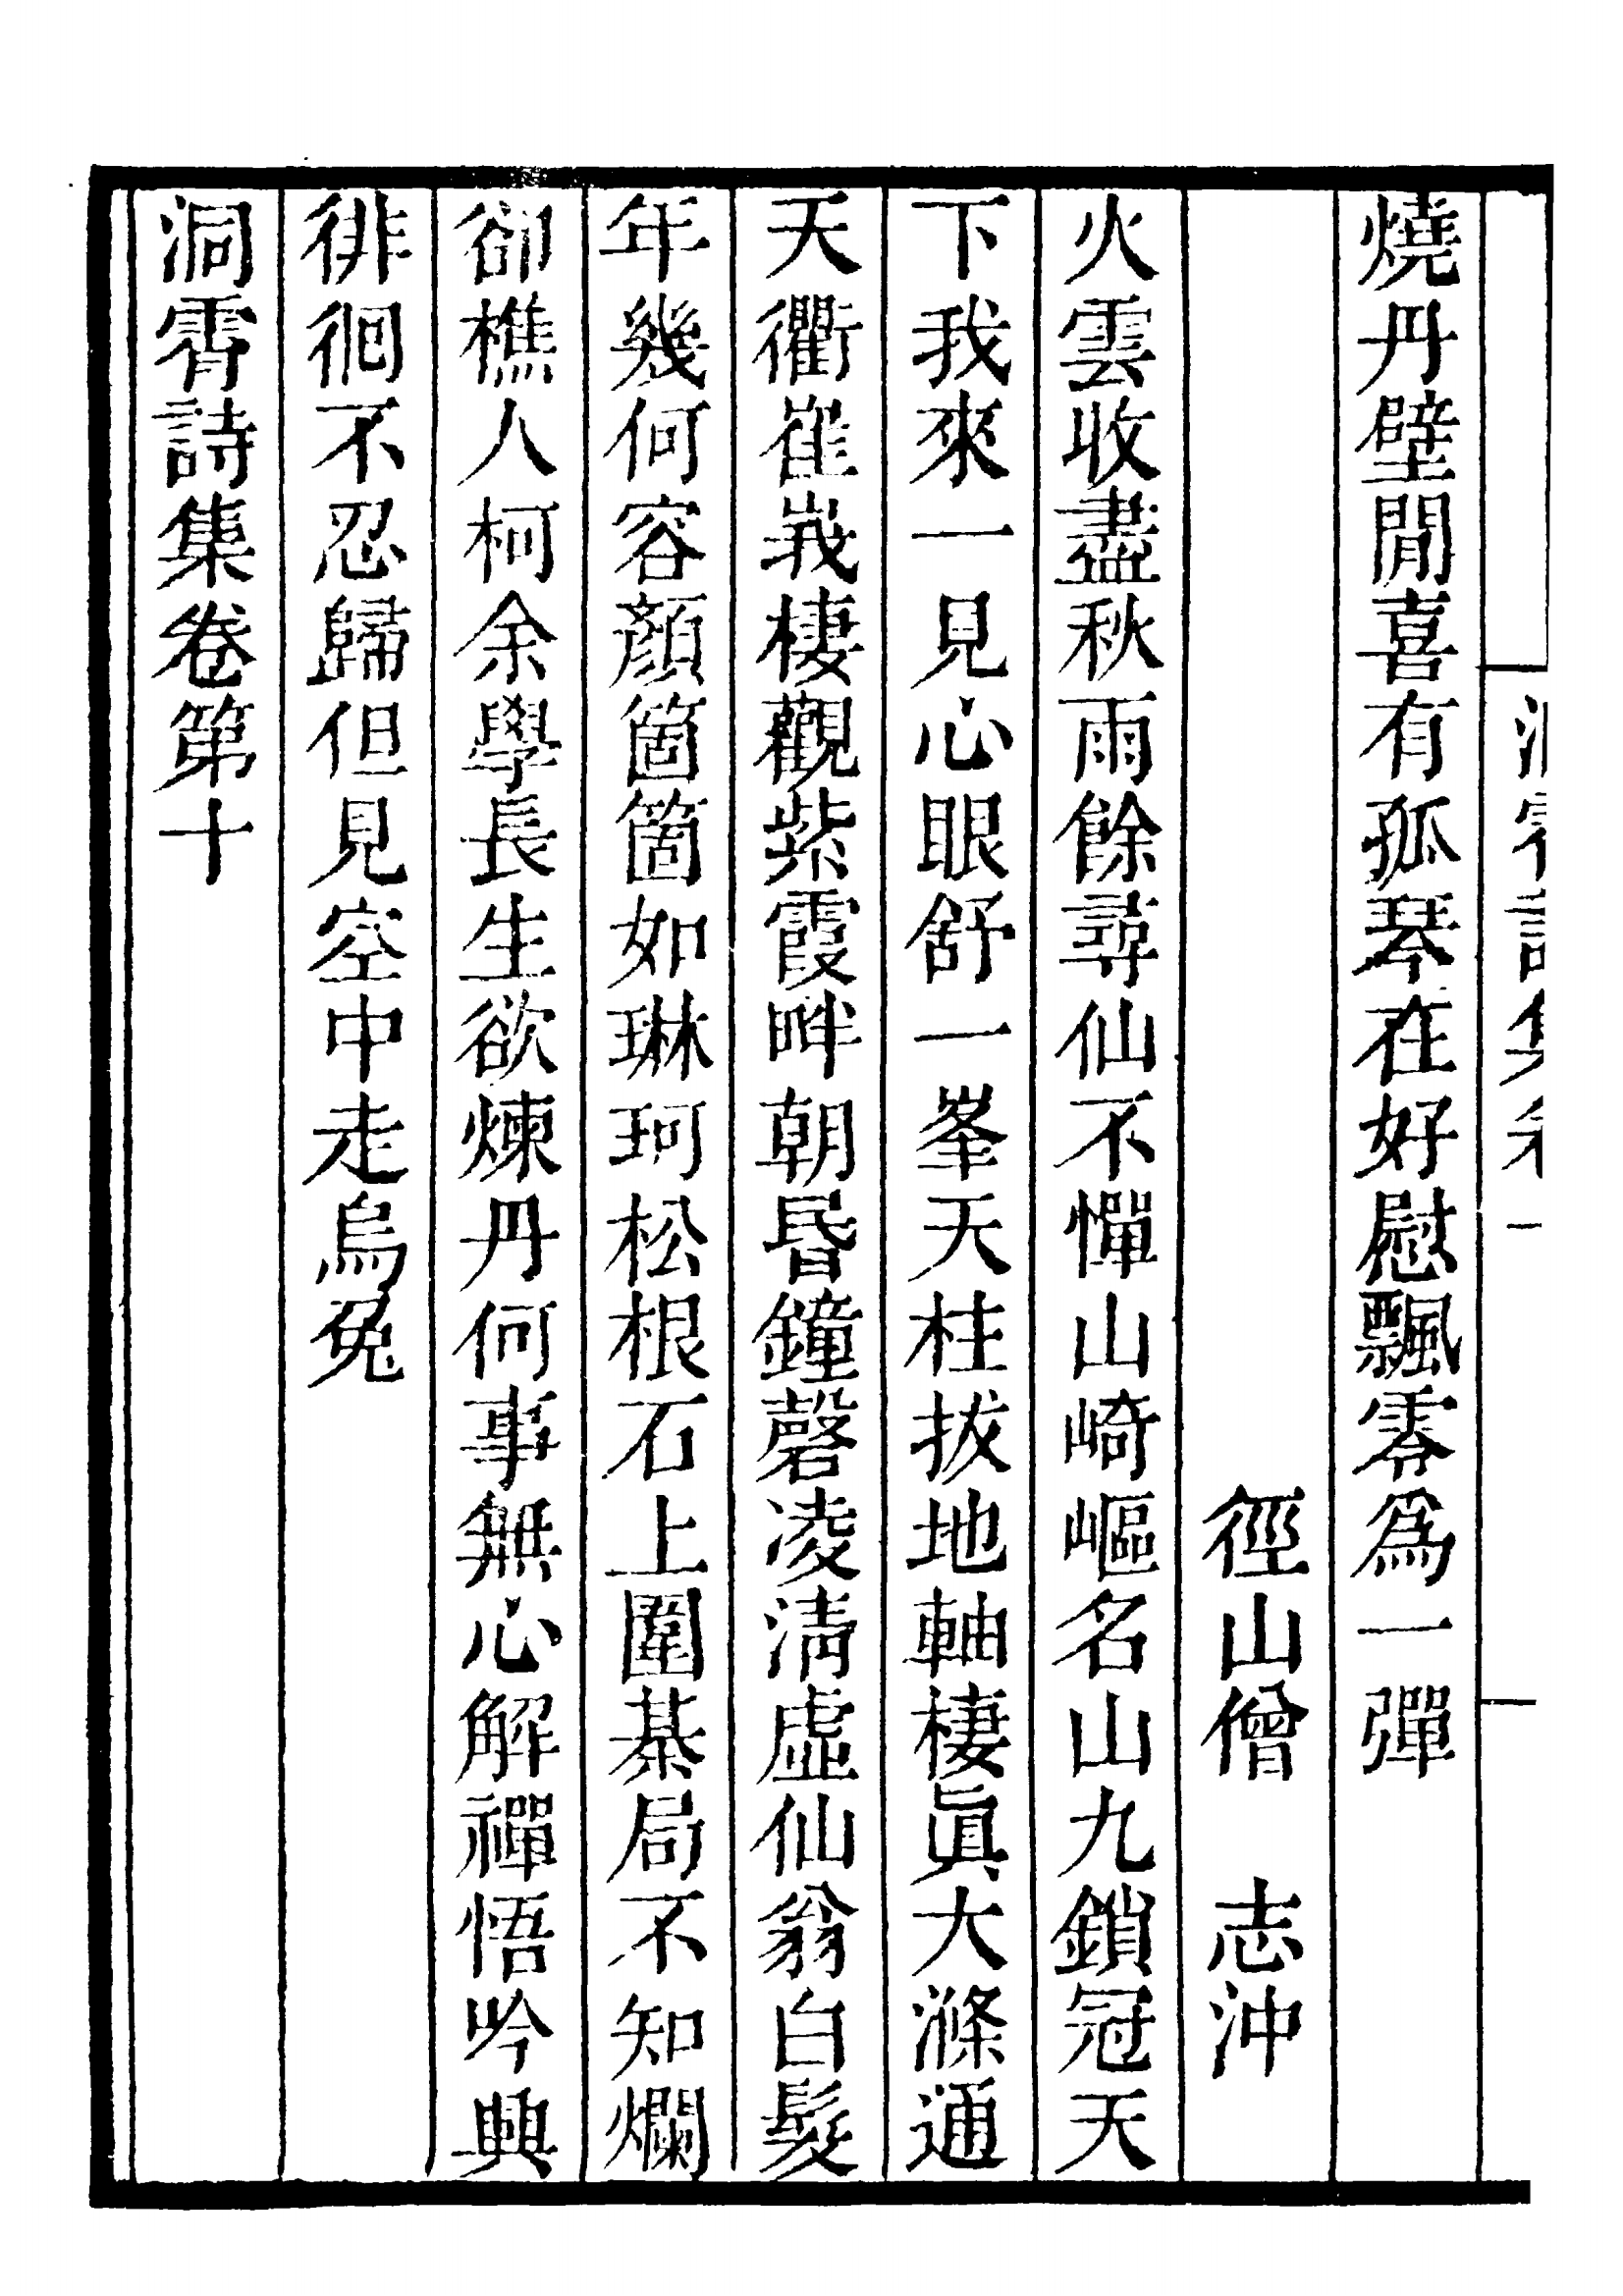 燒丹壁閒喜有孤琴在好慰飄零爲一彈
徑山僧　志沖
火雲收盡秋雨餘尋仙不憚山崎嶇名山九鎖冠天
下我來一見心眼舒一峯天柱拔地軸棲眞大滌通
天衢崔峩棲觀紫霞畔朝昏鐘磬凌淸虛仙翁白髮
年幾何容顏箇箇如琳珂松根石上圍棊局不知爛
卻樵人柯余學長生欲煉丹何事無心解禪悟吟興
徘徊不忍歸但見空中走烏兔
洞霄詩集卷第十